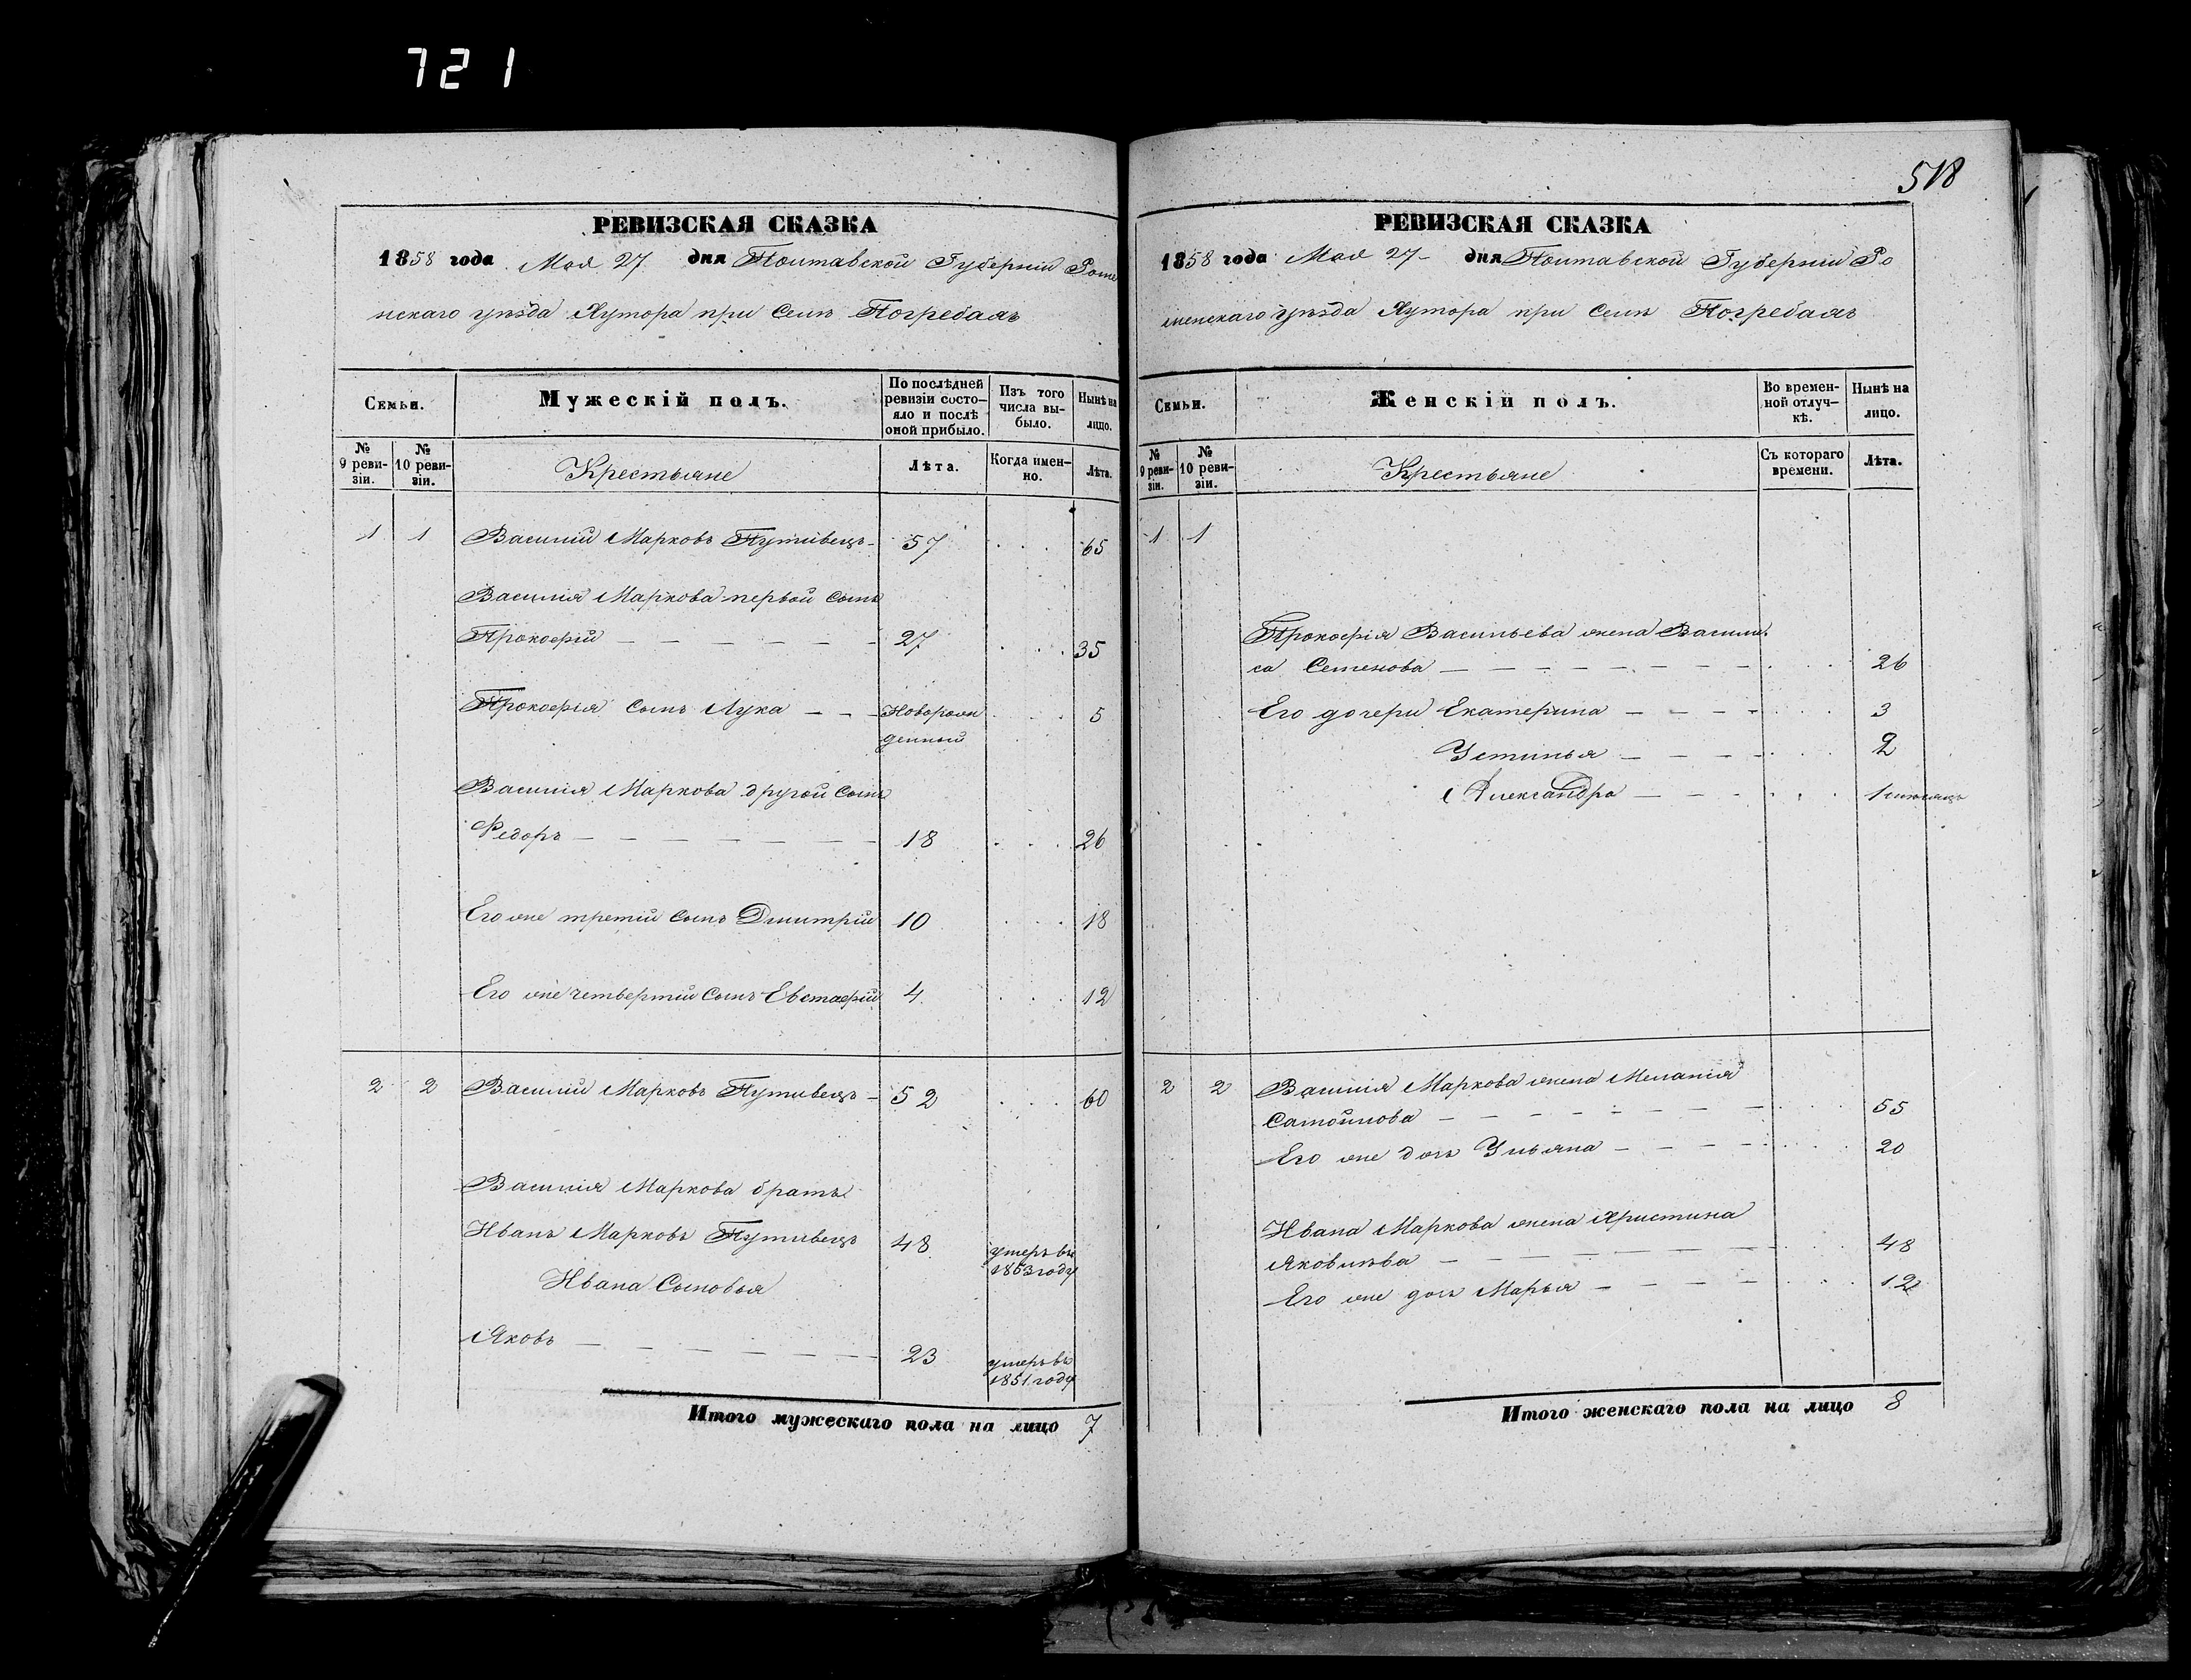 721
РЕВИЗСКАЯ СКАЗКА
1858 года Мая 27 дня Полтавской Губерніи Роме
нскаго уѣзда Хутора при Селѣ Погребахъ
Семьи.
Мужескій полъ.
По послѣдней
ревизіи состо-
яло и послѣ
оной прибыло.
Изъ того
числа вы-
было.
Нынѣ на
лицо.
№
9 реви-
зіи.
№
10 реви-
зіи.
Крестьяне
Лѣта.
Когда имен-
но.
Лѣта.
1 1 Василій Марковъ Путивецъ - 57 . . . 65
Василія Маркова первой сынъ
Прокофій — — — — — — 27 . . . 35
Прокофія сынъ Лука — — Новорож 5
денный
Василія Маркова другой сынъ
Федоръ — — — — — — 18 . . . 26
Его же третій сынъ Дмитрій 10 . . . 18
Его же четвертій сынъ Евстафій 4 . . . 12
2 2 Василій Марковъ Путивецъ - 52 . . . 60
Василія Маркова братъ
Иванъ Марковъ Путивецъ 48 умеръ въ
1853 году
Ивана Сыновья
Яковъ — — — — — — 23 умеръ въ
1851 году
Итого мужескаго пола на лицо 7
518
РЕВИЗСКАЯ СКАЗКА
1858 года Мая 27 - дня Полтавской Губерніи Ро
менскаго уѣзда Хутора при Селѣ Погребахъ
Семьи.
Женскій полъ.
Во времен-
ной отлуч-
кѣ.
Нынѣ на
лицо.
№
9 реви-
зіи.
№
10 реви-
зіи.
Крестьяне
Съ котораго
времени.
Лѣта.
1 1
Прокофія Васильева жена Васили
са Семенова — — — — — — — . . . 26
Его дочери Екатерина — — — — . . . 3
Устинья — — — — . . . 2
Александра — — — . . . 1 мѣсяцъ
2 2 Василія Маркова жена Меланія
Самойлова — — — — — — — . . . 55
Его же дочь Ульяна — — — — . . . 20
Ивана Маркова жена Христина
Яковлева — — — — — — . . . 48
Его же дочь Марья — — — — . . . 12
Итого женскаго пола на лицо 8